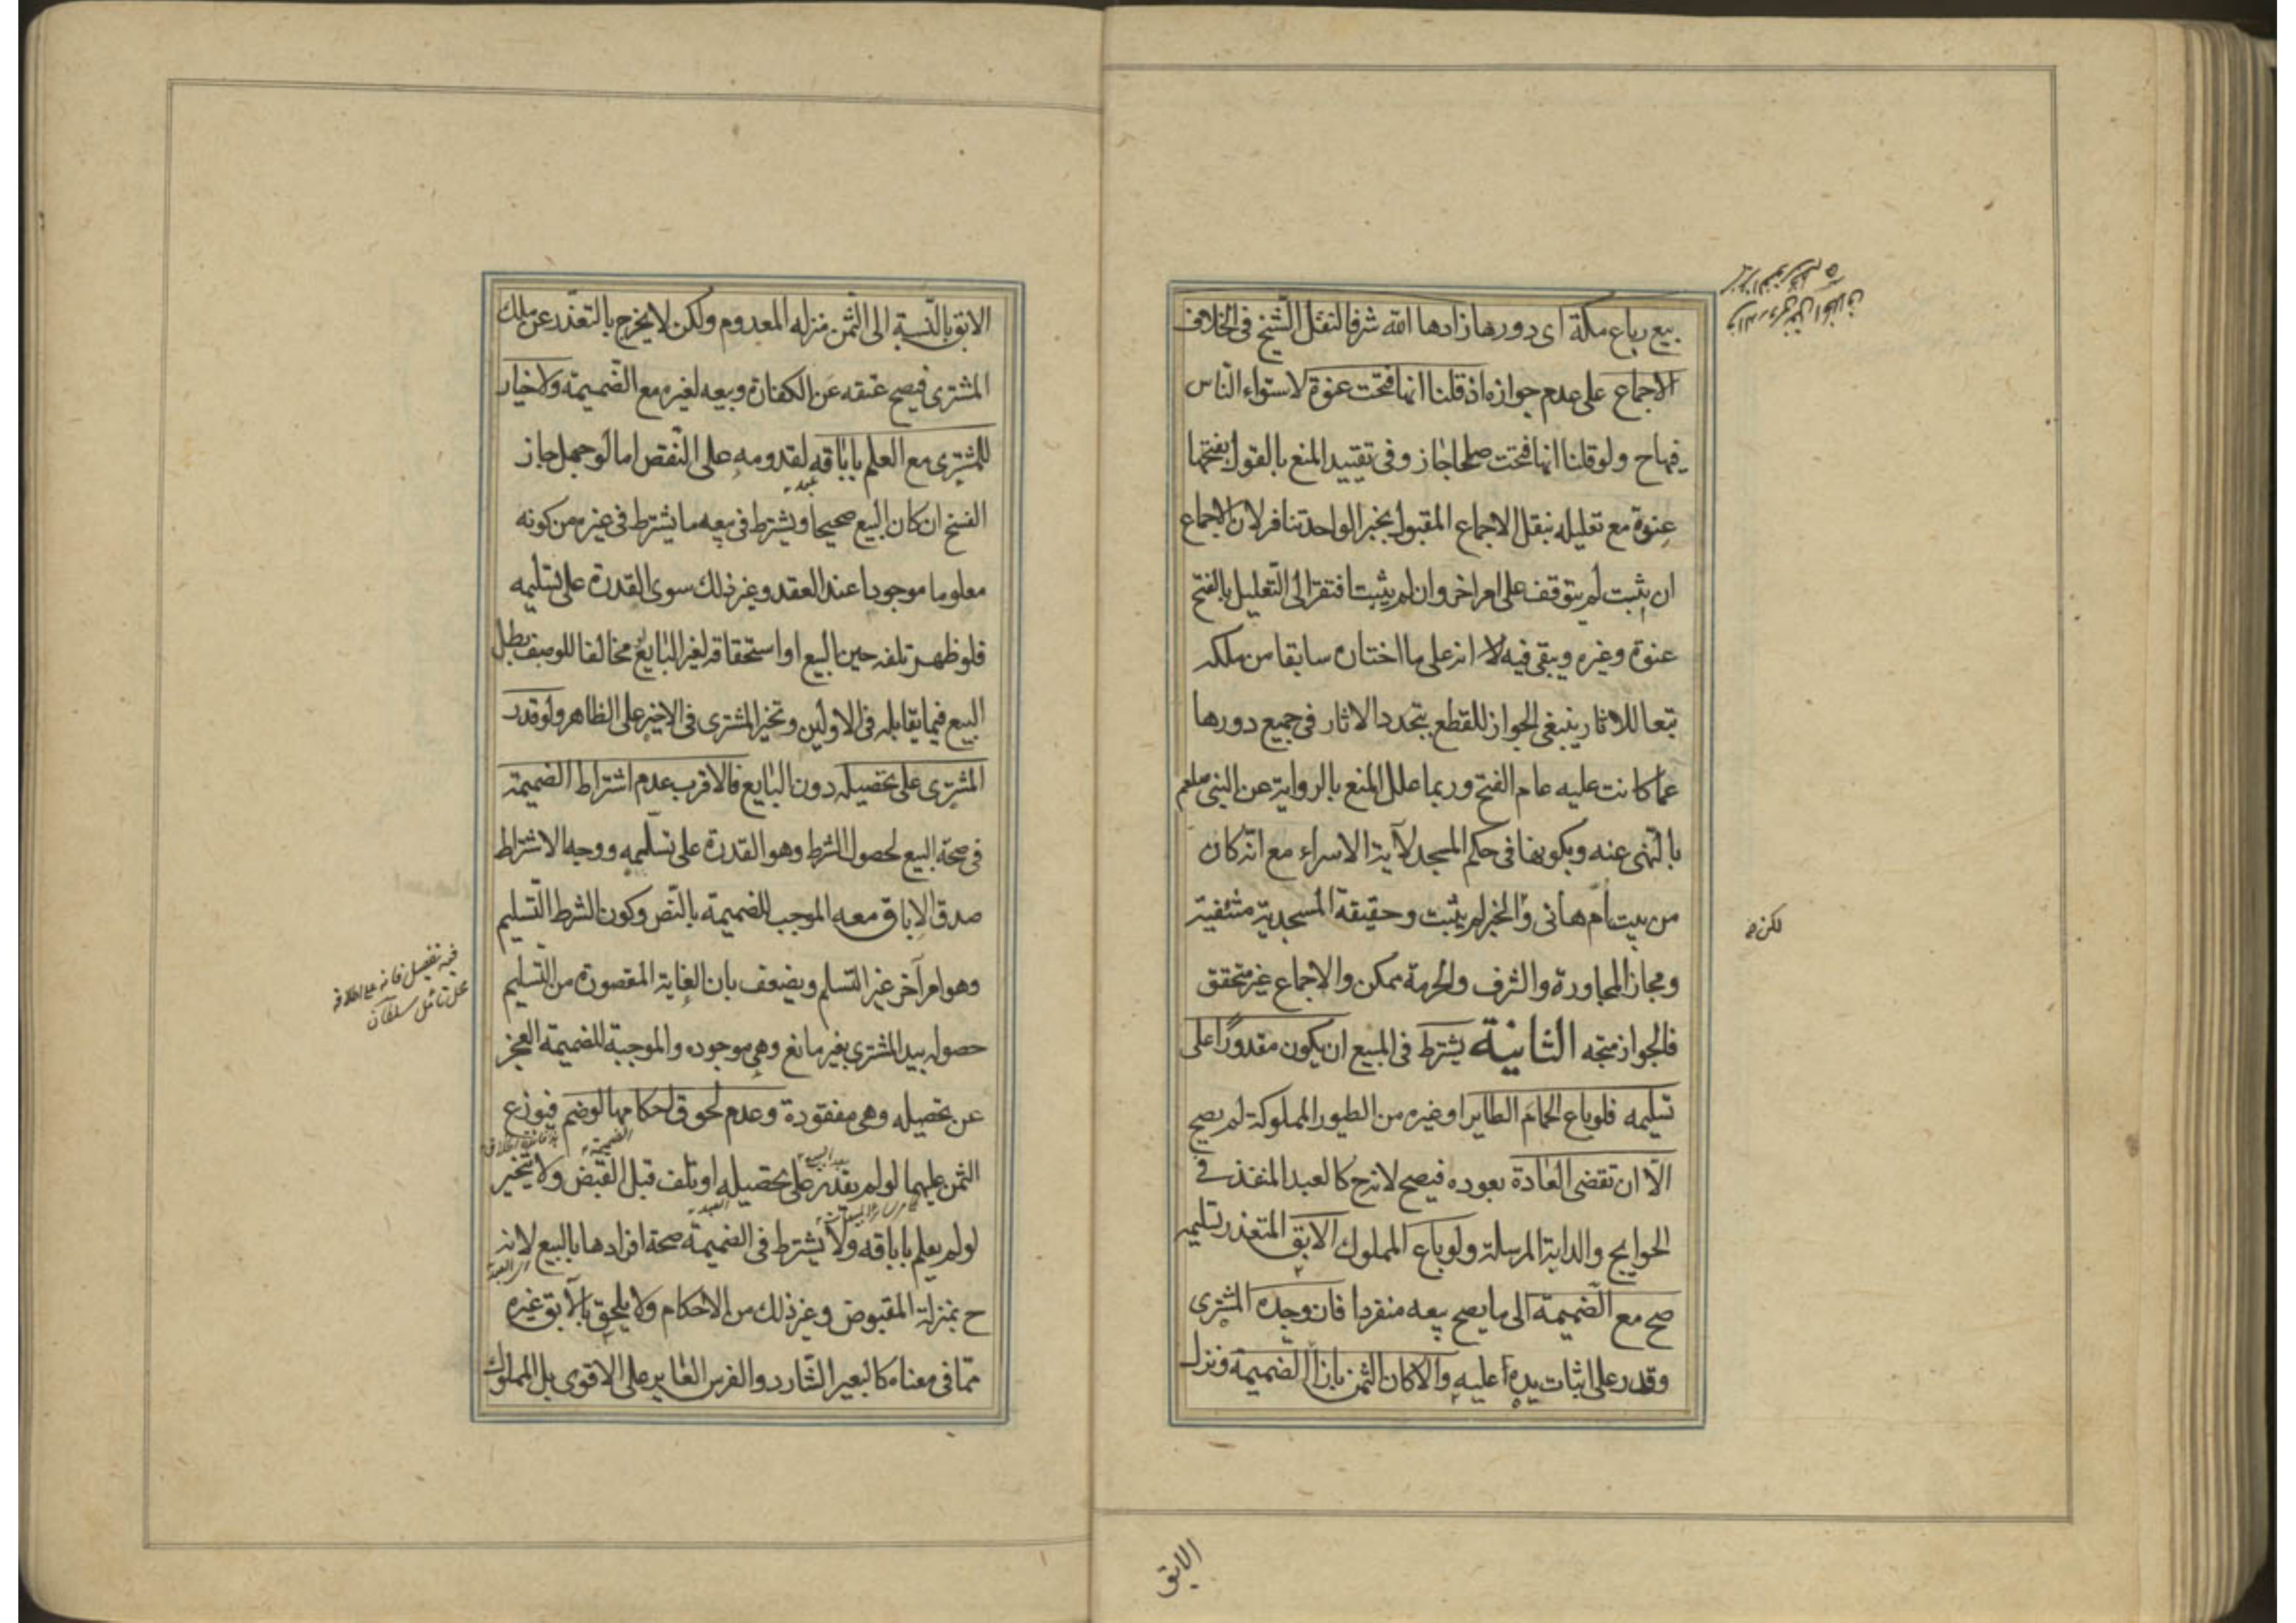 بيع رباع مكة اى دورها زادها الله شرفا لنقل الشيخ فى الخلاف
الاجماع على عدم جوازه اذ قلنا انها فتحت عنوة لاستواء الناس
فيها ح ولو قلنا انها فتحت صلحا جاز وفى تقييد المنع بالقول بفتحها
عنوة مع تعليله بنقل الاجماع المقبول بخبر الواحد تنافر لان الاجماع
ان ثبت لم يتوقف على امر اخر وان لم يثبت افتقر الى التعليل بالفتح
عنوة وغيره ويبقى فيه انه على ما اختاره سابقا من ملكه
تبعا للاثار ينبغى الجواز للقطع بتجدد الاثار فى جميع دورها
عما كانت عليه عام الفتح وربما علل المنع بالرواية عن النبى صلعم
بالنهى عنه وبكونها فى حكم المسجد لآية الاسراء مع انه كان
من بيت ام هانى والخبر لم يثبت وحقيقة المسجدية منتفية
لكن
ومجاز المجاورة والشرف والحرمة ممكن والاجماع غير متحقق
فالجواز متجه الثانية يشترط فى المبيع ان يكون مقدورا على
تسليمه فلو باع الحمام الطاير او غيره من الطيور المملوكة لم يصح
الا ان تقضى العادة بعوده فيصح لانه ح كالعبد المنفذ فى
الحوايج والدابة المرسلة ولو باع المملوك الآبق المتعذر تسليمه
صح مع الضميمة الى ما يصح بيعه منفردا فان وجده المشترى
وقدر على اثبات يده عليه والا كان الثمن بازاء الضميمة ونزل
الابق
الابق بالنسبة الى الثمن منزله المعدوم ولكن لا يخرج بالتعذر عن ملك
المشترى فيصح عتقه عن الكفارة وبيعه لغيره مع الضميمة ولا خيار
للمشترى مع العلم باباقه لقدومه على النقص اما لو جهل جاز
الفسخ ان كان البيع صحيحا ويشترط فى بيعه ما يشترط فى غيره من كونه
معلوما موجودا عند العقد وغير ذلك سوى القدرة على تسليمه
فلو ظهر تلفه حين البيع او استحقاقه لغير البايع مخالفا للوصف بطل
البيع فيما يقابله فى الاولين وتخير المشترى فى الاخير على الظاهر ولو قدر
المشترى على تحصيله دون البايع فالاقرب عدم اشتراط الضميمة
فى صحة البيع لحصول الشرط وهو القدرة على تسليمه ووجه الاشتراط
صدق الاباق معه الموجب للضميمة بالنص وكون الشرط التسليم
وهو امر آخر غير التسلم ويضعف بان الغاية المقصودة من التسليم
حصوله بيد المشترى بغير مانع وهى موجوده والموجبة للضميمة العجز
عن تحصيله وهى مفقودة وعدم لحوق احكامها لو ضم فيوزع
الضميمة
الثمن عليهما لو لم يقدر على تحصيله او تلف قبل القبض ولا يتخير
العبد
لو لم يعلم باباقه ولا يشترط فى الضميمة صحة افرادها بالبيع لانه
ح بمنزلة المقبوض وغير ذلك من الاحكام ولا يلحق بالآبق غيره
مما فى معناه كالبعير الشارد والفرس الغاير على الاقوى بل المملوك